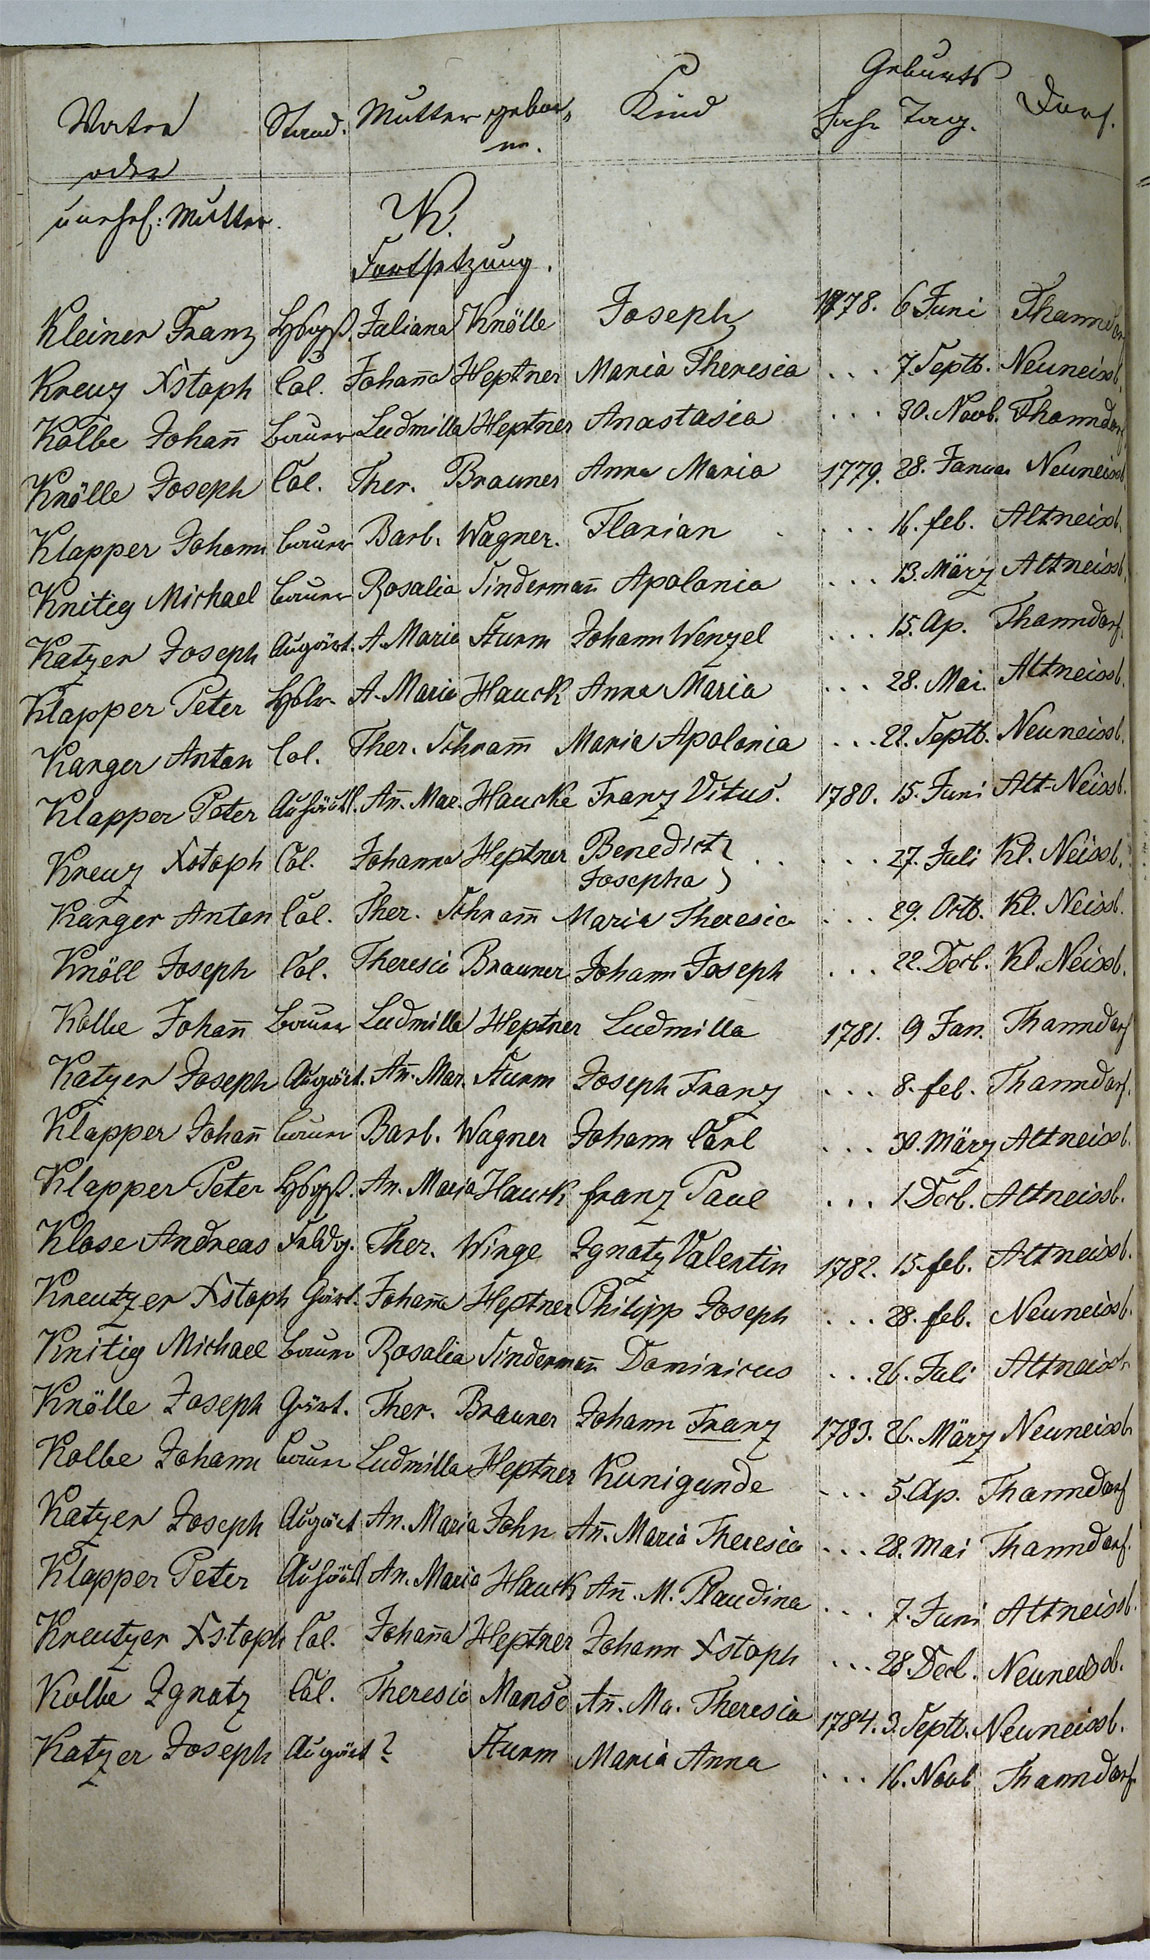 Geburts
Vater Stand. Mutter gebor- Kind Jahr Tag. Dorf.
oder ne.
unehl: Mutter. K.
Fortsetzung.
Kleiner Franz Juliana Knölle Joseph 1778. 6 Juni Thanndor
Kreuz Xstoph Col. Johan̄a Heptner Maria Theresia . . . 7. Septb. Neuneissb.
Kolbe Johan̄ bauer Ludmilla Heptner Anastasia . . . 30. Novb. Thanndorf
Knölle Joseph Col. Ther. Brauner Anna Maria 1779. 28. Januar Neuneissb.
Klapper Johann bauer Barb. Wagner. Florian . . . 16. feb. Altneissb.
Knitig Michael bauer Rosalia Linderman̄ Apolonia . . . 13. März Altneissb.
Katzer Joseph Augärt. A. Maria Sturm Johann Wenzel . . . 15. Ap. Thanndorf.
Klapper Peter A. Maria Hauck Anna Maria . . . 28. Mai. Altneissb.
Karger Anton Col. Ther. Schram̄ Maria Apolonia . . . 22. Septb. Neuneissb.
Klapper Peter An̄. Mar. Haucke Franz Vitus. 1780. 15. Juni Alt-Neissb.
Kreuz Xstoph Col. Johanna Heptner Benedict } . . . . . 27. Juli Kl. Neissb.
Josepha }
Karger Anton Col. Ther. Schram̄ Maria Theresia . . . 29. Octb. Kl. Neissb.
Knöll Joseph Col. Theresia Brauner Johann Joseph . . . 22. Decb. Kl. Neissb.
Kolbe Johan̄ bauer Ludmilla Heptner Ludmilla 1781. 9 Jan. Thanndorf
Katzer Joseph Augärt. An̄. Mar. Sturm Joseph Franz . . . 8. feb. Thanndorf.
Klapper Johan̄ bauer Barb. Wagner Johann Carl . . . 30. März Altneissb.
Klapper Peter An. Maria Hauck franz Paul . . . 1. Decb. Altneissb.
Klose Andreas Feldg. Ther. Winge Ignatz Valentin 1782. 15. feb. Altneissb.
Kreutzer Xstoph Gärt. Johan̄a Heptner Philipp Joseph . . . 28. feb. Neuneissb.
Knitig Michael bauer Rosalia Linderman̄ Dominicus . . . 26. Juli Altneissb.
Knölle Joseph Gärt. Ther. Brauner Johann Franz 1783. 26. März Neuneissb.
Kolbe Johann bauer Ludmilla Heptner Kunigunde . . . 5. Ap. Thanndorf
Katzer Joseph Augärt An. Maria John An̄. Maria Theresia . . . 28. Mai Thanndorf.
Klapper Peter An. Maria Hauck An̄. M. Klaudina . . . 7. Juni Altneissb.
Kreutzer Xstoph Col. Johan̄a Heptner Johann Xstoph . . . 28 Decb. Neuneissb.
Kolbe Ignatz Col. Theresia An̄. Ma. Theresia 1784. 3. Septb. Neuneissb.
Katzer Joseph Augärt ? Sturm Maria Anna . . . 16. Novb Thanndorf.